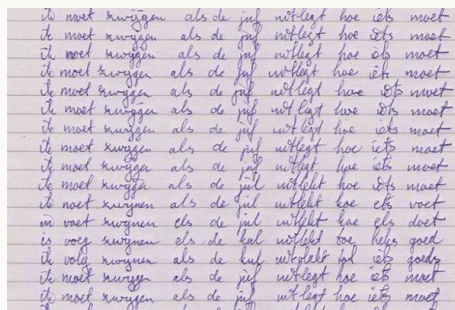 ik moet zwijgen als de juf uitlegt hoe iets moet
ik moet zwijgen als de juf uitlegt hoe iets moet
ik moet zwijgen als de juf uitlegt hoe iets moet
ik moet zwijgen als de juf uitlegt hoe iets moet
ik moet zwijgen als de juf uitlegt hoe iets moet
ik moet zwijgen als de juf uitlegt hoe iets moet
ik moet zwijgen als de juf uitlegt hoe iets moet
ik moet zwijgen als de juf uitlegt hoe iets moet
ik moet zwijgen als de juf uitlegt hoe iets moet
ik moet zwijgen als de jul uitlekt hoe iets moet
ik noet zwijnen als de jul uitlekt hoe ets voet
in voet zwijnen els de jul uitlekt hoe els doet
is voeg zwijnen els de kul uitlekt hoe heks goed
ik volg zwijnen als de kul
ik moet zwijgen als de juf uitlegt hoe iets moet
ik moet zwijgen als de juf uitlegt hoe iets moet